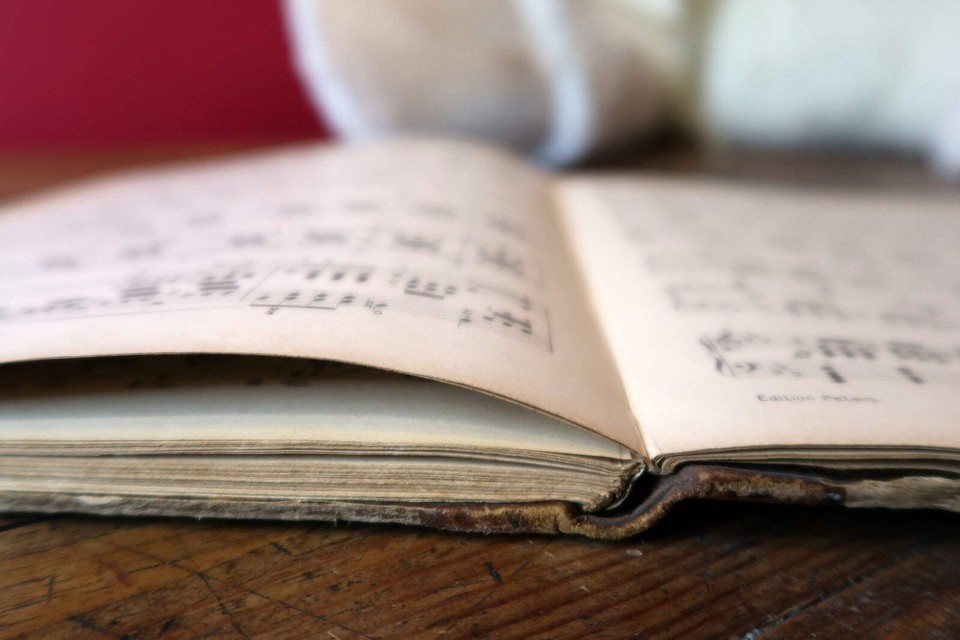 Edition Peters.